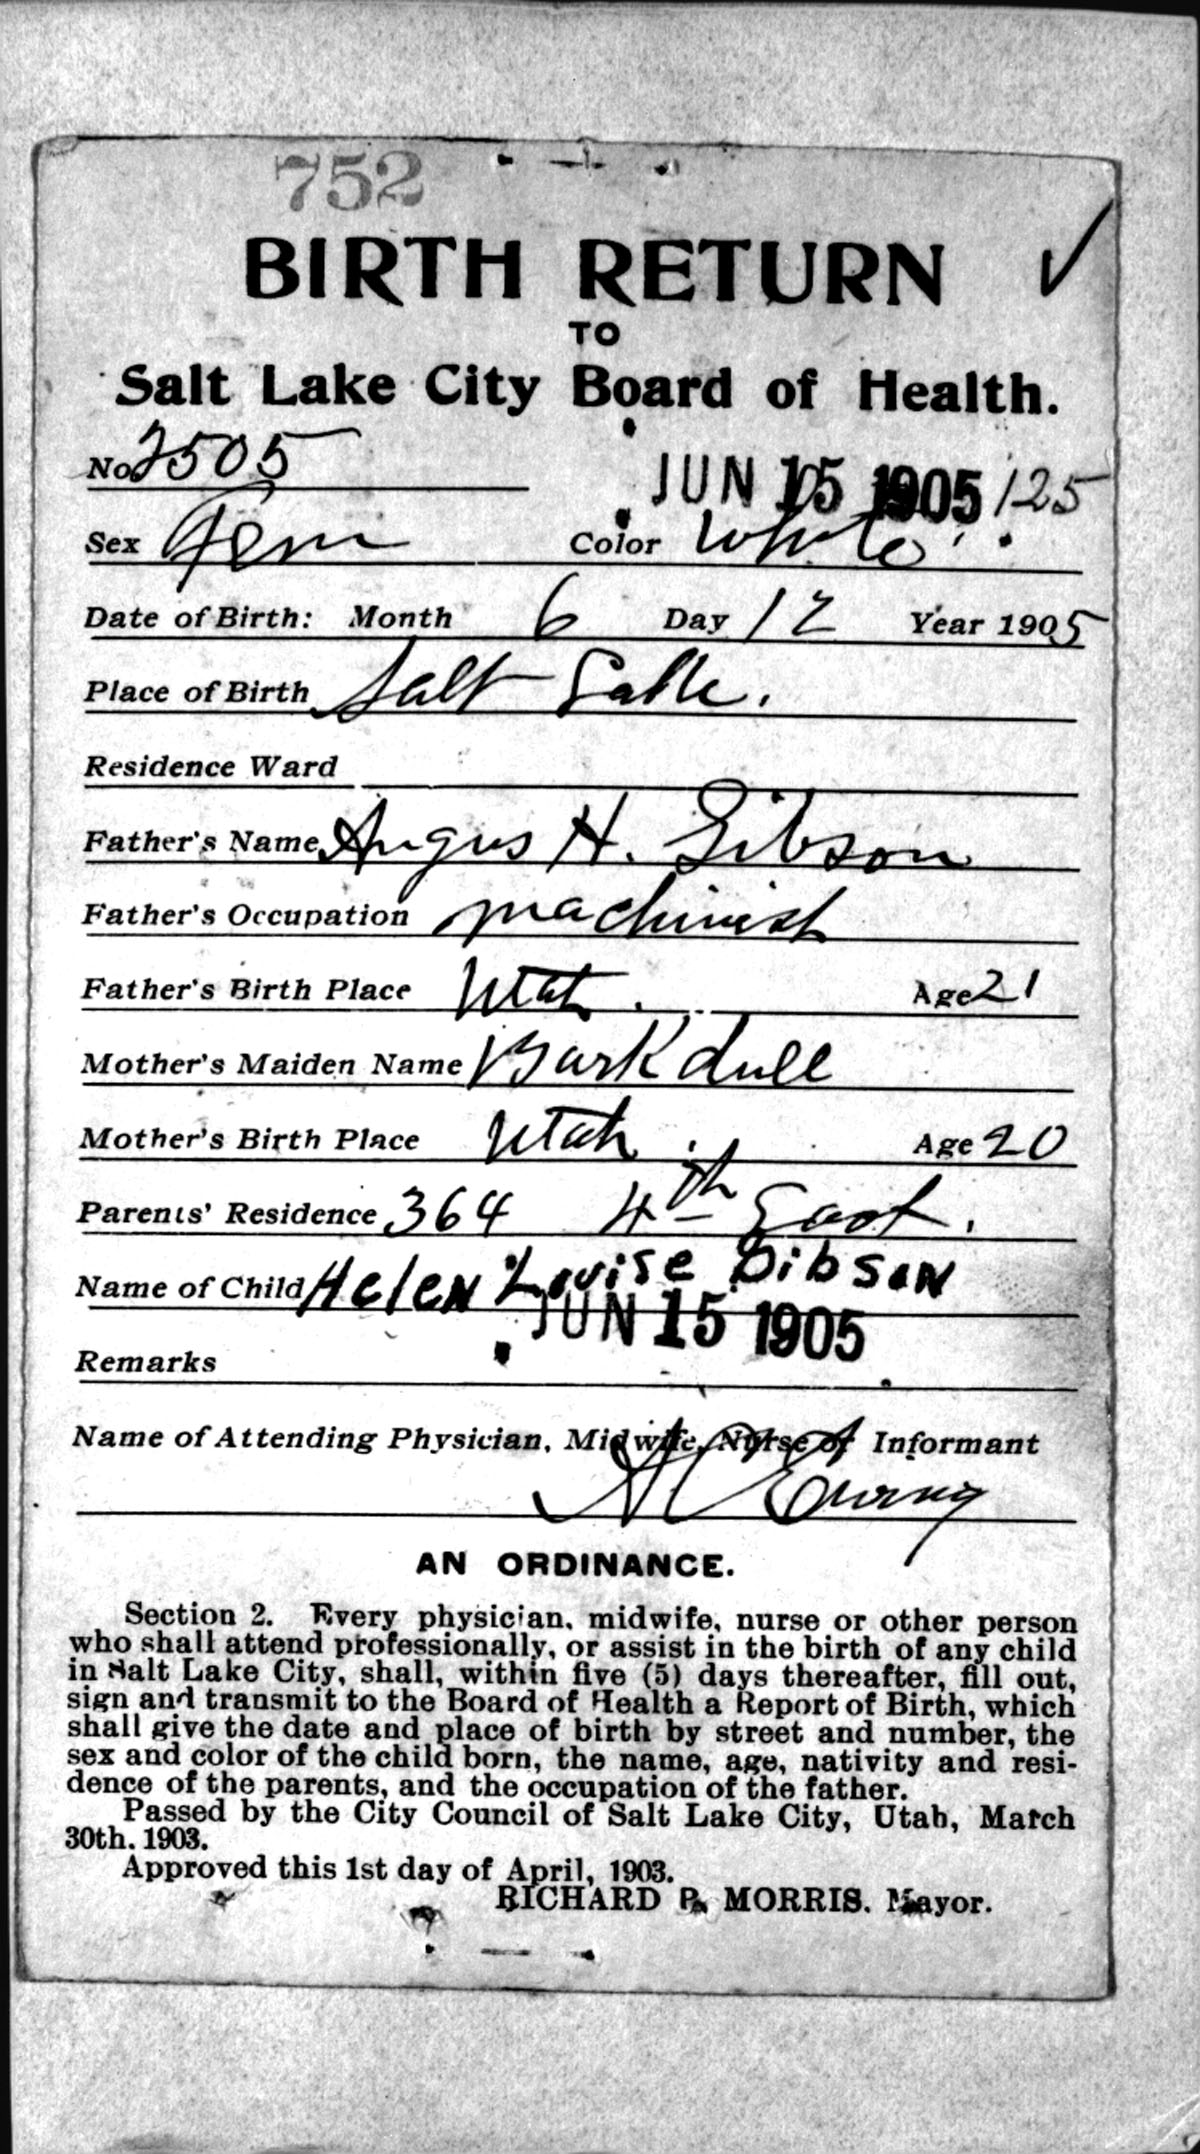 752
BIRTH RETURN
TO
Salt Lake City Board of Health.
No. 2505
JUN 15 1905 125
Sex Fem Color White
Date of Birth: Month 6 Day 12 Year 1905
Place of Birth Salt Lake.
Residence Ward
Father's Name Angus H. Gibson
Father's Occupation machinist
Father's Birth Place Utah. Age 21
Mother's Maiden Name Barkdull
Mother's Birth Place Utah Age 20
Parents' Residence 364 4th East.
Name of Child Helen Louise Gibson
JUN 15 1905
Remarks
Name of Attending Physician, Midwife, Nurse or Informant
Ewing
AN ORDINANCE.
Section 2. Every physician, midwife, nurse or other person
who shall attend professionally, or assist in the birth of any child
in Salt Lake City, shall, within five (5) days thereafter, fill out,
sign and transmit to the Board of Health a Report of Birth, which
shall give the date and place of birth by street and number, the
sex and color of the child born, the name, age, nativity and resi-
dence of the parents, and the occupation of the father.
Passed by the City Council of Salt Lake City, Utah, March
30th, 1903.
Approved this 1st day of April, 1903.
RICHARD P. MORRIS, Mayor.